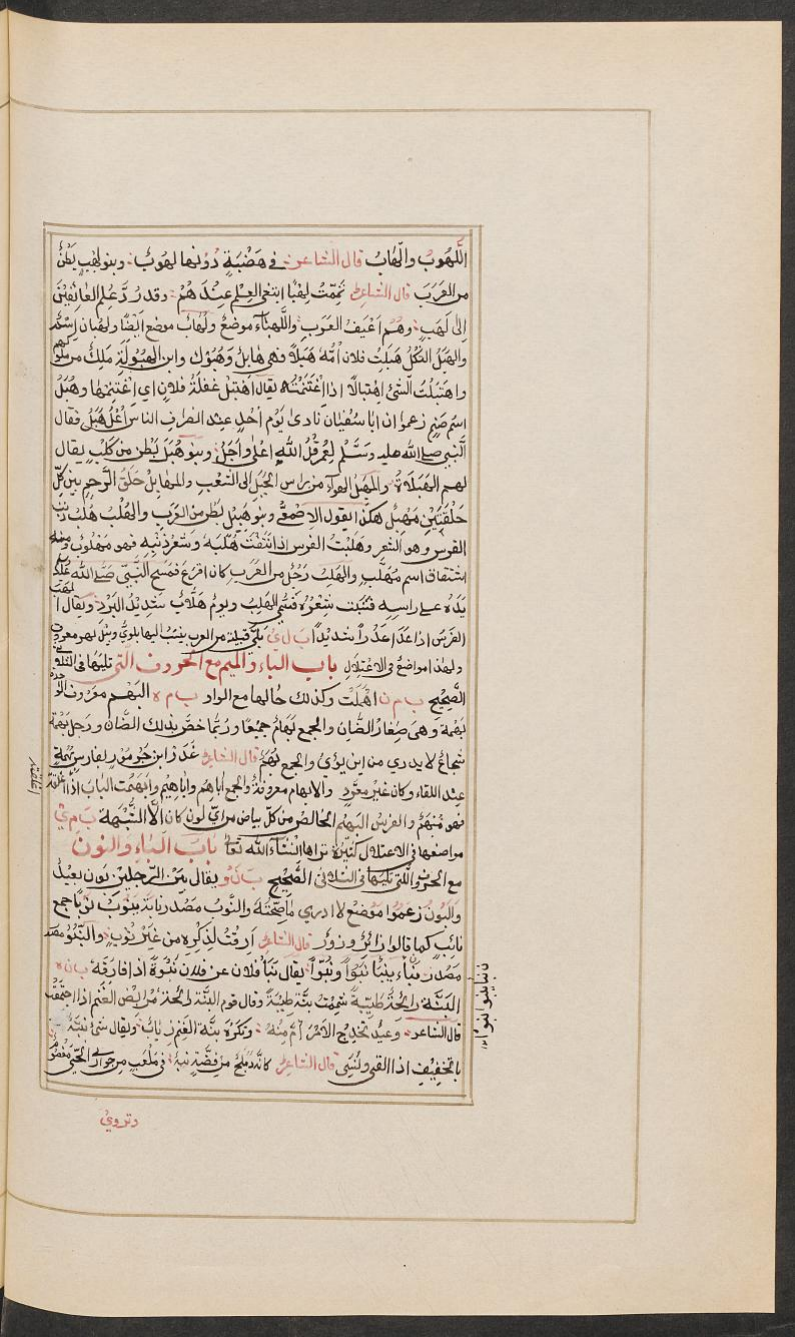 اللُّهوبُ والّهابُ قال الشاعر في هَضْبَةٍ دُونها لهوبُ وبنو لِهْبٍ بَطْنٌ
من العَرَبَ قال الشاعرُ تَيَمَّمتُ لِهْبًا ابتغي العِلم عِنْدَ هُمْ وقد رُدَّ عِلم العائفينَ
إلى لَهَبٍ وهُم اَعْيَفُ العَرَب واللَّهباء موضعٌ ولُهَابٌ موضع ايضًا ولهبان اِسْمٌ
والهَبَلُ الثكل هَبِلَتْ فلان اُمُّه هَبَلاً فهي هابلٌ وَهبُول وابن الهَبُولَةِ مَلِكٌ من ملوكهم
واهتَبَلْتُ الشئ اِهْتِبالاً اذا اغْتَنَمْتُه يقال اهْتَبَل غَفْلَةَ فلانٍ اي اغْتَنَمَها وهُبَلُ
اسم صَنَمٍ زعموا ان ابا سُفيَان نادى يَوْم اُحُدٍ عند انصراف الناس اُعْلُ هُبَلُ فقال
النّبي صلى الله عليه وسَلّم لِعُمَر قُل اللهُ اعلىٰ واَجَلُّ وبنو هُبَلَ بَطْن من كَلْبٍ يقال
لهم الهَبَلَاتُ والمَهْبِل الهواء من راس الجَبَل الى الشعب والمهَابِلُ حَلَقُ الرَّحِمِ بين كلّ
حَلْقَتَيْنِ مَهْبِل هكذا يقول الاصْمَعيُّ وبنو هُبَيْل بَطْن من العَرَب والهُلْبُ هُلْبُ ذنَب
الفرس وهو الشعر وهَلَبْتُ الفرَس اذا نَتَفْتَ هُلْبَهُ وشعرَ ذَنَبِه فهو مَهْلُوب ومنه
اشتقاق اسم مُهَلَّبٍ والهَلِب رَجُل من العَرَب كان اقرعَ فمَسَح النَّبيّ صَلّى الله عليه
يَدَهُ على راسِه فَنَبَتَ شَعْرُهُ فسُمّى الهَلِبَ ويَومٌ هَلَّابٌ شَدِيدُ البَرْدِ ويقال اهْلَبَ
الفَرَس اذا عَدَا عَدْوًا شديدًا ب ل ي بَلِيٌّ قبيلة من العرب ينسَبُ اليها بلويٌّ
ولهذا مواضع في الاعتلال باب الباء والميم مع الحروف التي تليهَا في الثلاثي
الصَّحِيحِ ب م ن اُهْمِلَتْ وكذلك حالها مع الواو ب م ه البَهْم معروف الواحدة
بَهْمة وهيَ صِغارُ الضَّان والجمع بَهَامٌ جميعًا وربَّما خصَّ بذلك الضَّان ورَجل بُهْمَة
شجاعٌ لا يدري من اين يؤتى والجمع بُهَمٌ قال الشاعر غَدَرَ ابن جُرمُوزٍ بفارس بُهْمَةٍ
عِند اللقاء وكان غيرَ معرّدٍ والابهام معروفة والجمع اباهِم واباهِيم وابهَمْت الباب اذا اغلقته
فهو مُبْهَمٌ والفرسُ البَهِيم الخالصُ من كلّ بياض من ايّ لون كان الا الشُّهْبة ب م ي
مواضعها في الاعتلال كثيرة تراها انشاء الله تعا باب الباء والنون
مع الحروف التي تليهَا في الثلاثي الصَّحِيح ب ن و يقال بَيْن الرَّجلين بَون بعيدٌ
والبَون زعَمُوا مَوضِعٌ لا ادري ماصِحَّتُهُ والنَّوبُ مصْدر نابَهُ ينُوبُ نَوْبًا جمع
نائِب كما قالوا زائر وزَور قال الشاعر اَرِقتُ لِذكرِه من غَيْرِ نَوبٍ والنَّبْوُ مصْدر
مَصْدر نَباء ينبُاَ نَبوًا ونُبوًا يقال نَبَاَ فلان عن فلان نَبْوَةً اذا فارقَهُ ب ن ه
البَنَّة رائحةٌ طَيّبة شَمِمْتُ بَنَّة طيّبَةً وقال قوم البَنَّة رائحة مَرابِض الغَنَم اذا اجتَمَعْت
قال الشاعر وعِيدٌ تَخْدِجُ الآرامُ مِنهُ وتكرَه بنَّة الغَنَم ذِيابُ ويقال شئ نبَهٌ
بالتخفيفِ اذا القي ونُسِى قال الشاعر كانّه دُمْلُجٌ من فِضَّةٍ نَبَهٌ في مَلْعَب من جوارى الحَيّ مَفصُومُ
وتروي